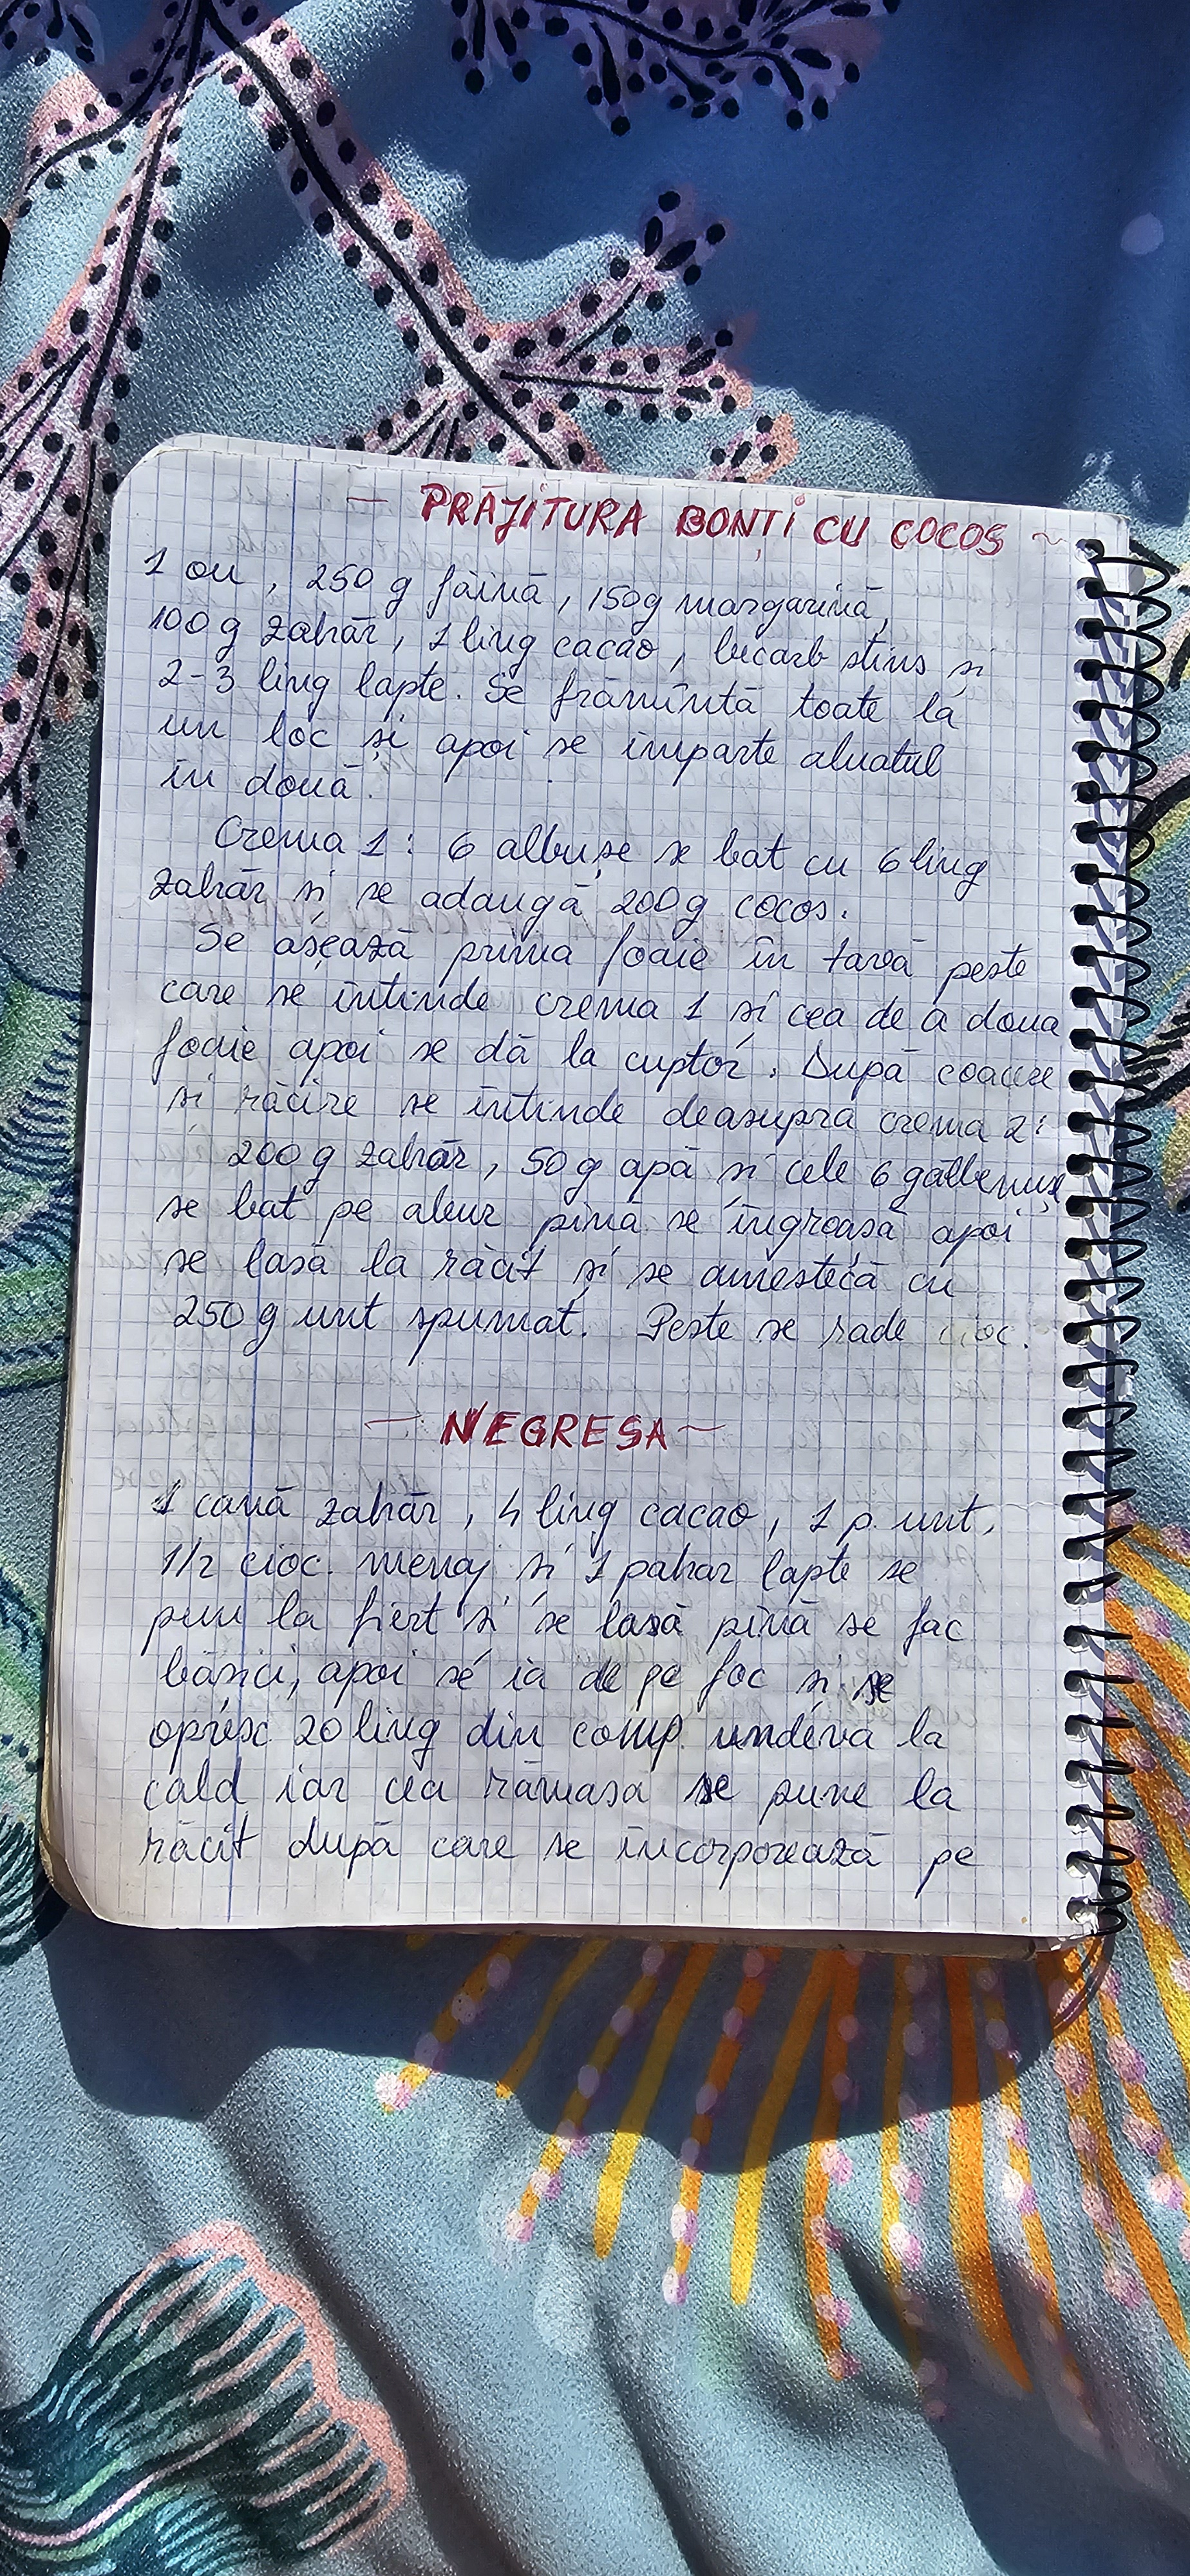 — PRĂJITURA BONȚI CU COCOS ~
1 ou, 250 g făină, 150g margarină,
100 g zahăr, 1 ling cacao, bicarb stins și
2-3 ling lapte. Se frămîntă toate la
un loc și apoi se împarte aluatul
în două.
Crema 1: 6 albușe se bat cu 6 ling
zahăr și se adaugă 200g cocos.
Se așează prima foaie în tavă peste
care se întinde crema 1 și cea de a doua
foaie apoi se dă la cuptor. După coacere
și răcire se întinde deasupra crema 2:
200 g zahăr, 50 g apă și cele 6 gălbenușe
se bat pe abur pînă se îngroașă apoi
se lasă la răcit și se amestecă cu
250 g unt spumat. Peste se rade cioc.
— NEGRESA ~
1 cană zahăr, 4 ling cacao, 1 p. unt,
1/2 cioc. menaj și 1 pahar lapte se
pun la fiert și se lasă pînă se fac
bășici, apoi se ia de pe foc și se
opresc 20 ling din comp. undeva la
cald iar cea rămasa se pune la
răcit după care se încorporează pe